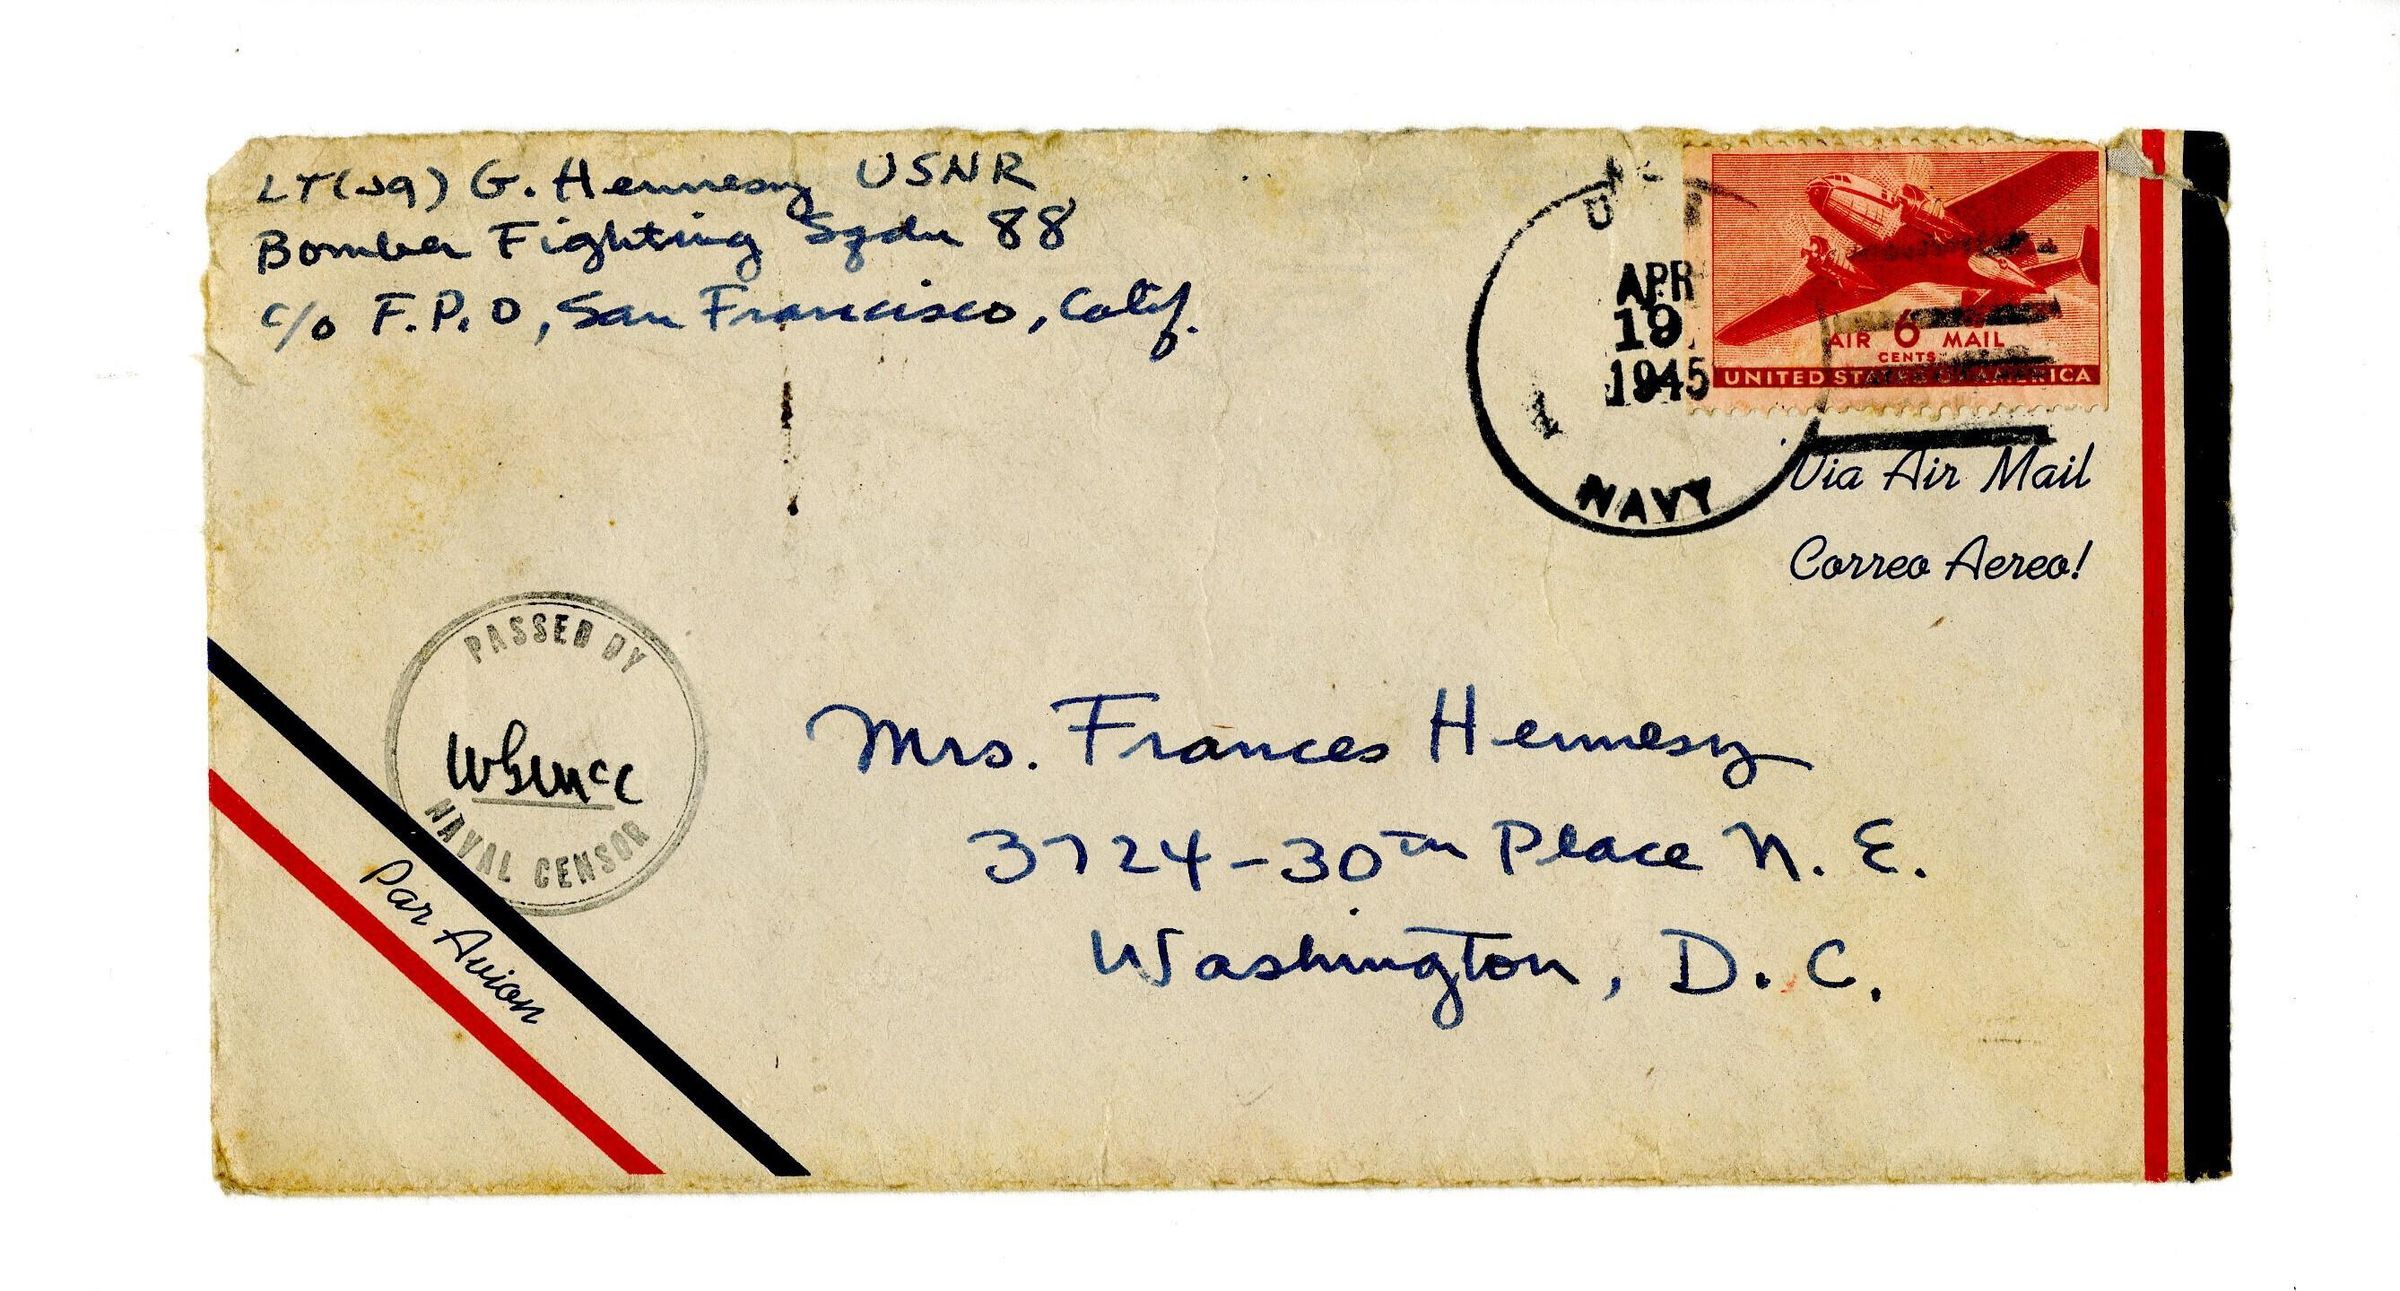 LT(JG) G. Hennesy USNR
Bomber Fighting Sqdn 88
c/o F.P.O, San Francisco, Calif.
U.S.
APR
19
1945
NAVY
AIR 6 MAIL
CENTS
UNITED STATES OF AMERICA
Via Air Mail
Correo Aereo!
PASSED BY
NAVAL CENSOR
Par Avion
Mrs. Frances Hennesy
3724-30th Place N.E.
Washington, D.C.